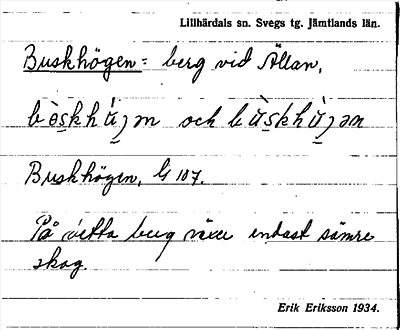 Lillhärdals sn. Svegs tg. Jämtlands län.
Buskhögen = berg vid Ällan,
och
Buskhögen, G 107.
På detta berg växer endast sämre
skog.
Erik Eriksson 1934.